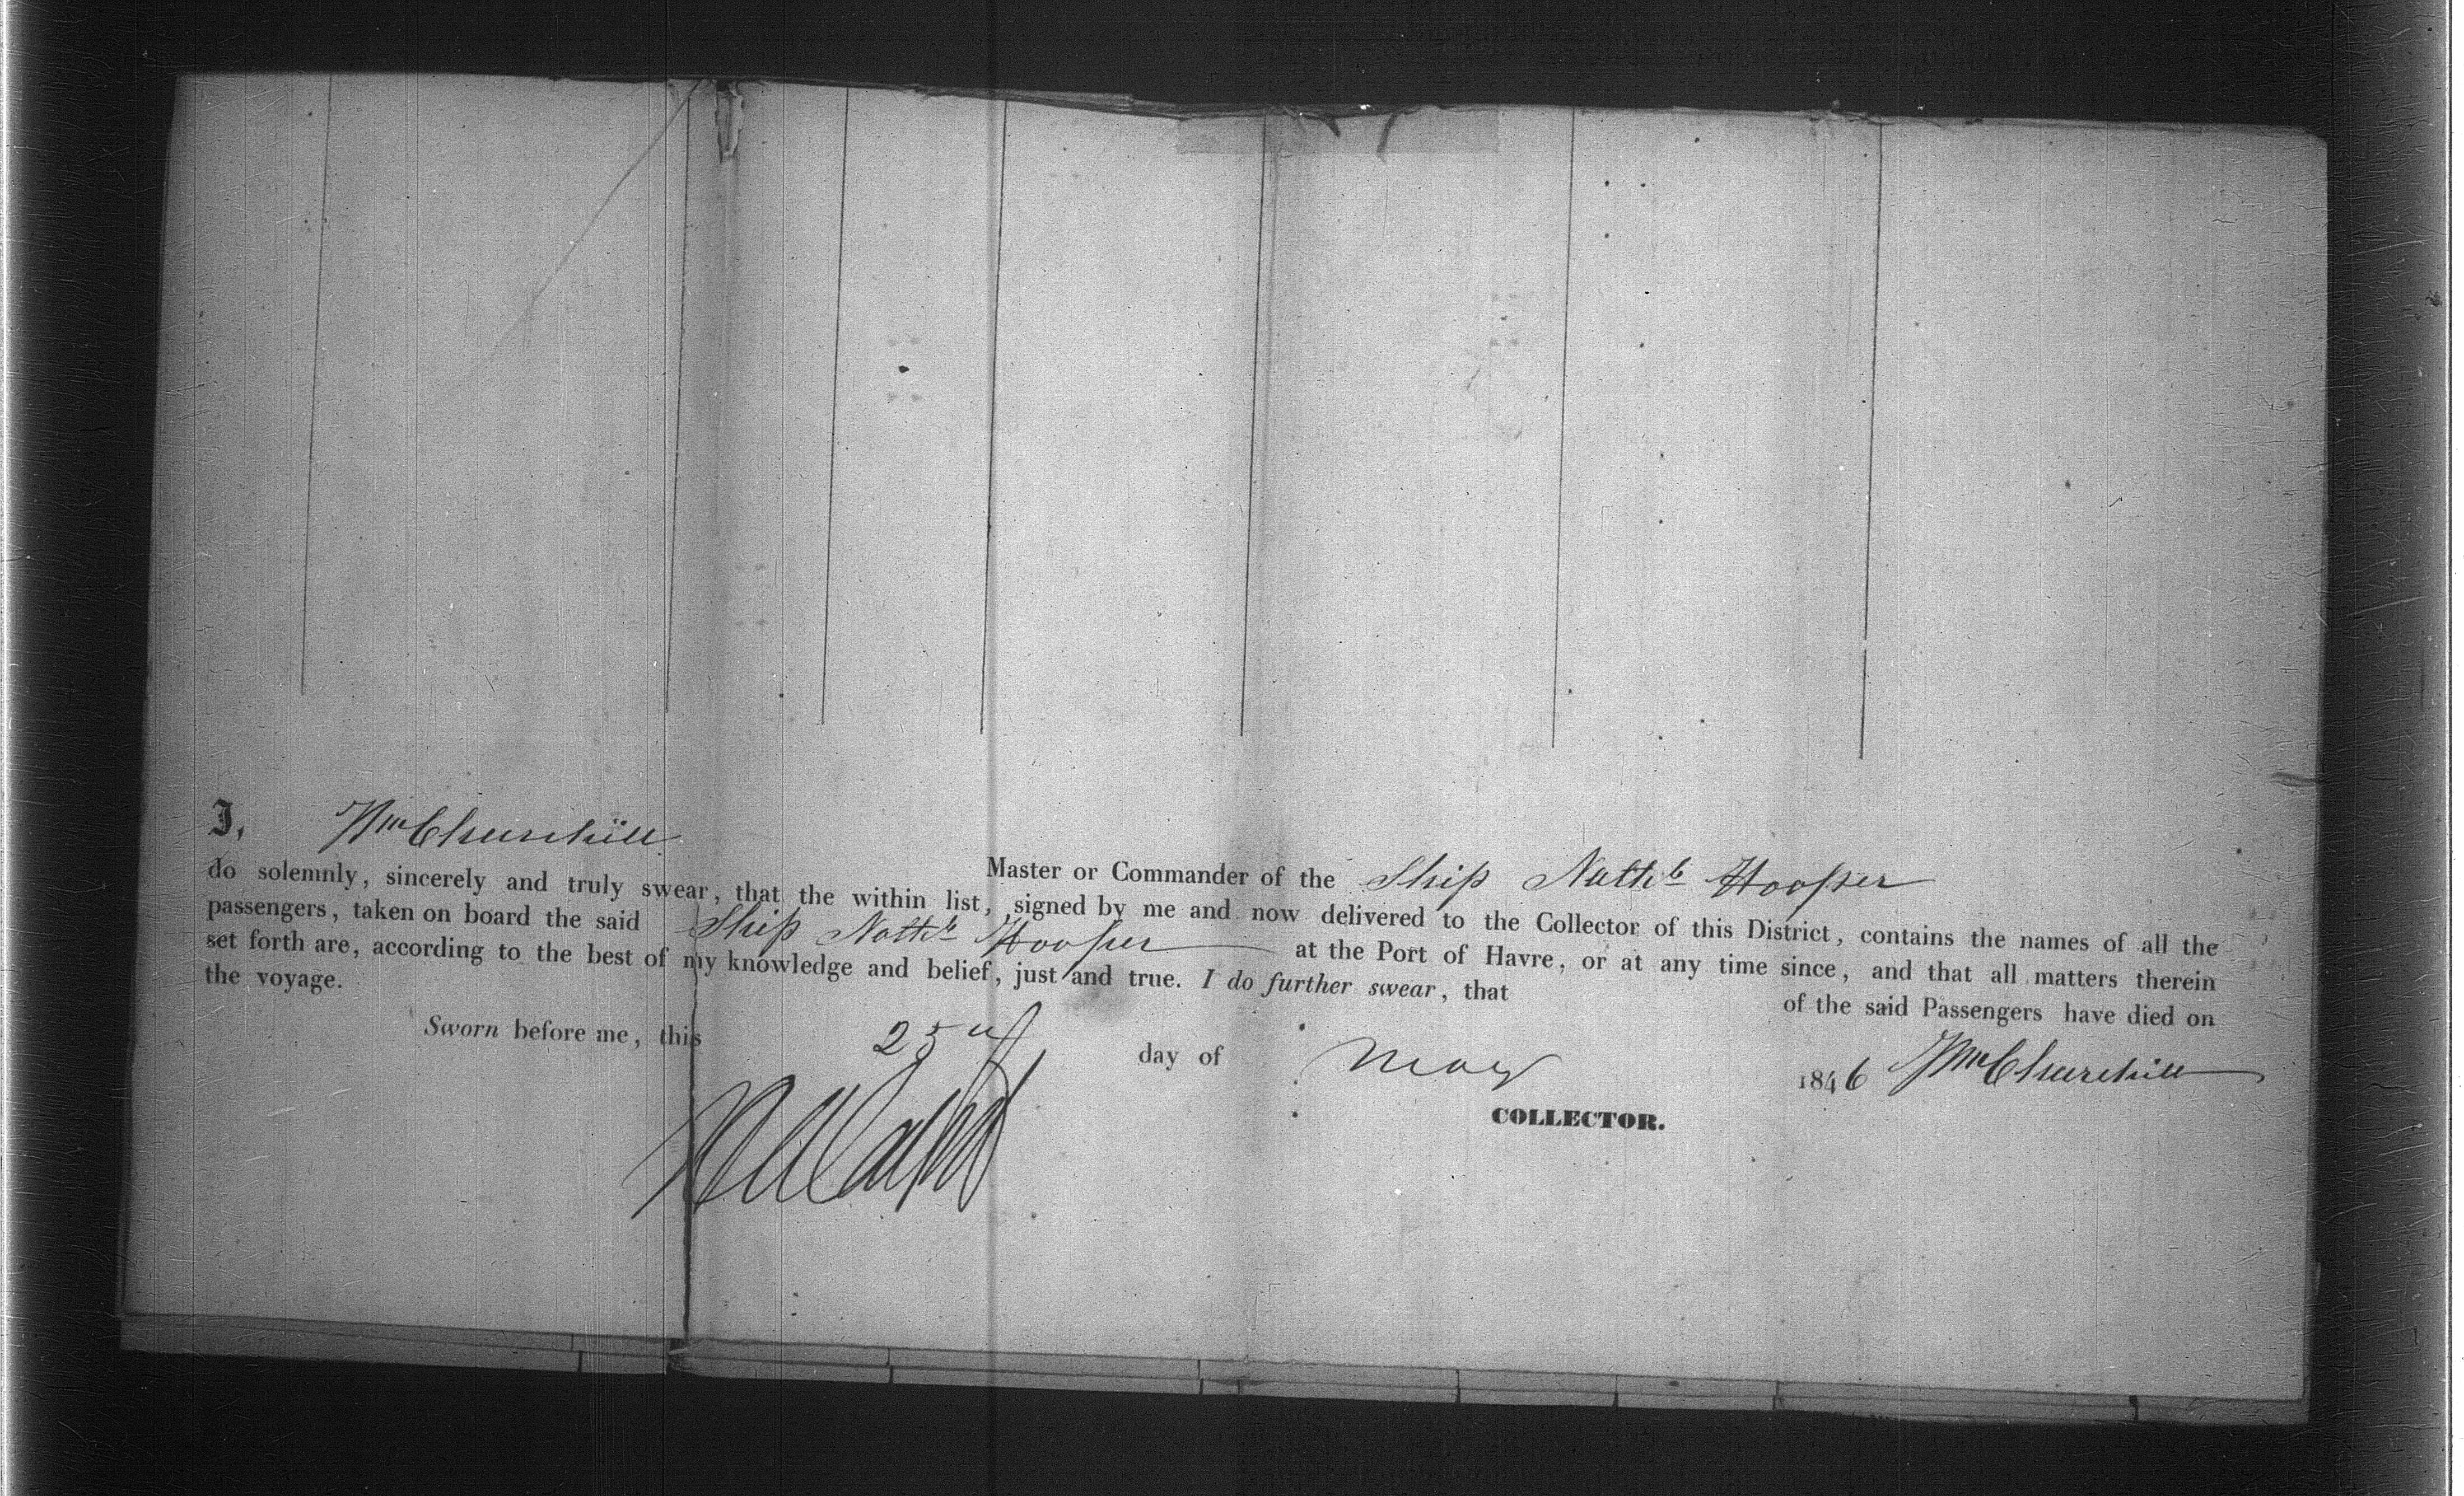 I, Wm Churchill Master or Commander of the Ship Nathl Hooper
do solemnly, sincerely and truly swear, that the within list, signed by me and now delivered to the Collector of this District, contains the names of all the
passengers, taken on board the said Ship Nathl Hooper at the Port of Havre, or at any time since, and that all matters therein
set forth are, according to the best of my knowledge and belief, just and true. I do further swear, that of the said Passengers have died on
the voyage.
Sworn before me, this 25th day of May 1846 Wm Churchill
COLLECTOR.